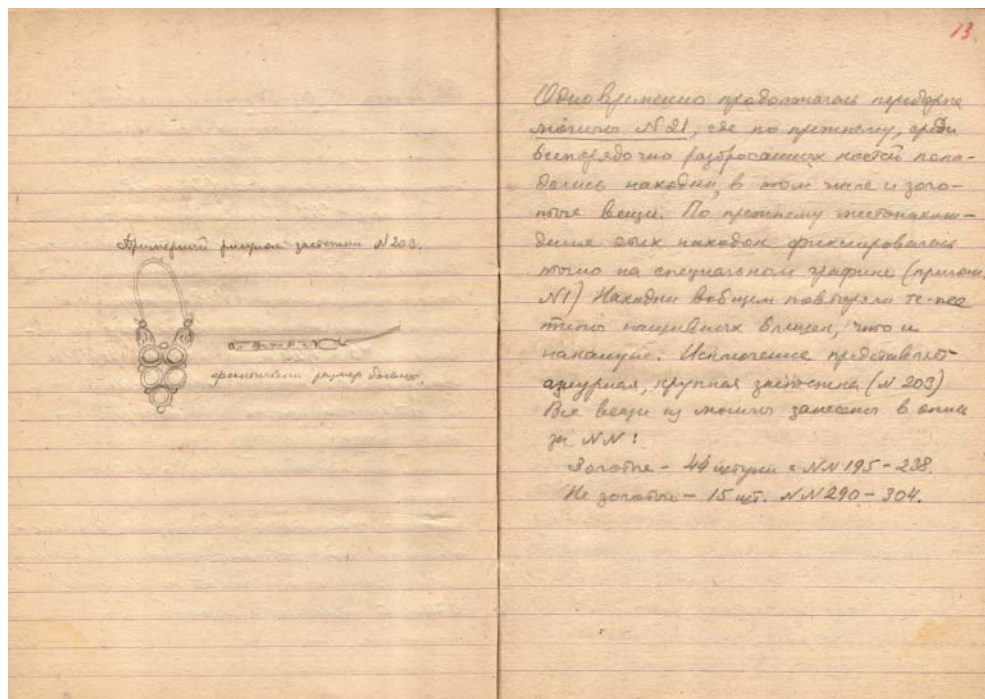 Примерный рисунок застежки N 203.
фактически размер больше.
13.
Одновременно продолжалась переборка
могилы N 21, где по прежнему, среди
беспорядочно разбросанных костей попа-
дались находки, в том числе и золо-
тые вещи. По прежнему местонахож-
дение этих находок фиксировалось
точно на специальном графике (прилож.
N1) Находки вобщем повторяли те-же
типы нашивных бляшек, что и
накануне. Исключение представляет
ажурная, крупная застежка (N 203)
Все вещи из могилы занесены в опись
за NN:
Золотые - 44 штуки с NN 195 - 238.
Не золотые - 15 шт. NN 290 - 304.